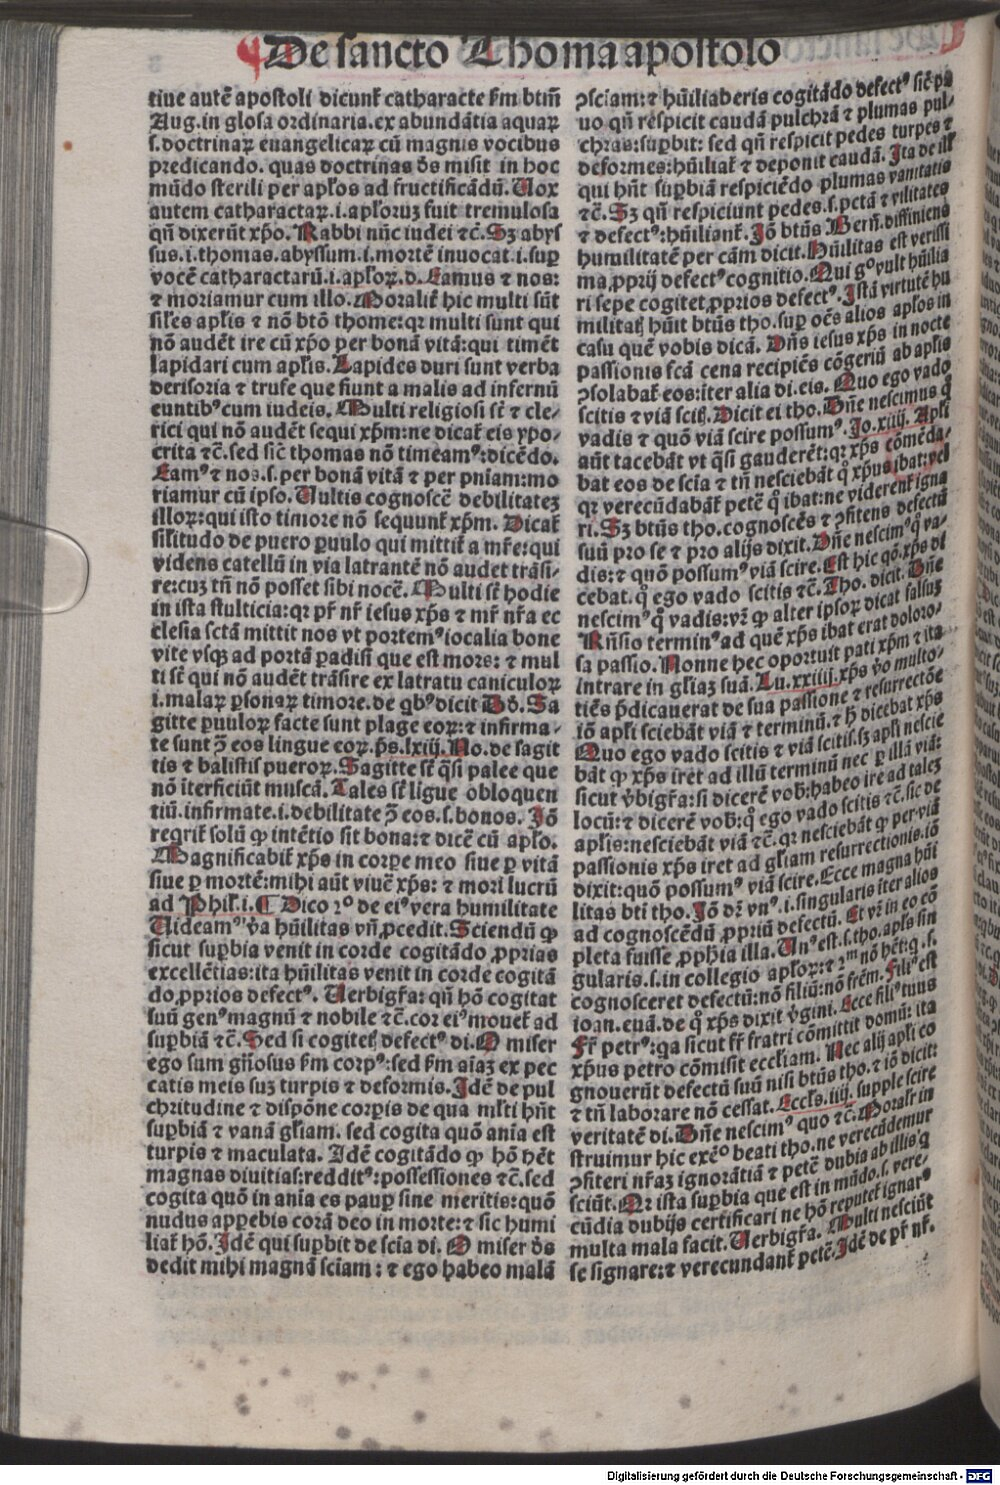 De sancto Thoma apostolo
tiue autē apostoli dicunt᷒ catharacte s̄m btm̄
Aug. in glosa ordinaria. ex abundātia aquaꝝ
s. doctrinaꝝ euangelicaꝝ cū magnis vocibus
predicando. quas doctrinas dn̄s misit in hoc
mūdo sterili per apl̄os ad fructificādū. Uox
autem catharactaꝝ .i. apl̄oruꝫ fuit tremulosa
qn̄ dixerūt xp̄o. Rabbi nūc iudei ⁊c̄. Sꝫ abys
sus .i. thomas. abyssum .i. mortē inuocat .i. suꝑ
vocē catharactarū .i. apl̄oꝝ .d. Eamus ⁊ nos:
⁊ moriamur cum illo. Moralit᷒ hic multi sūt
sil̄es apl̄is ⁊ nō btō thome: qꝛ multi sunt qui
nō audēt ire cū xp̄o per bonā vitā: qui timēt
lapidari cum apl̄is. Lapides duri sunt verba
derisoria ⁊ trufe que fiunt a malis ad infernū
euntibꝰ cum iudeis. Multi religiosi st̄ ⁊ cle⸗
rici qui nō audēt sequi xp̄m: ne dicat᷒ eis ypo⸗
crita ⁊c̄. sed sic̄ thomas nō timeamꝰ: dicēdo.
Eamꝰ ⁊ nos .s. per bonā vitā ⁊ per pn̄iam: mo
riamur cū ipso. Multis cognosce᷒ debilitateꝫ
illoꝝ: qui isto timore nō sequunt᷒ xp̄m. Dicat᷒
sil̄itudo de puero ꝑuulo qui mittit᷒ a mr̄e: qui
videns catellū in via latrantē nō audet trāsi⸗
re: cuꝫ tn̄ nō posset sibi noce᷒. Multi st̄ hodie
in ista stulticia: qꝛ pr̄ nr̄ iesus xp̄s ⁊ mr̄ nr̄a ec
clesia sctā mittit nos vt portemꝰ iocalia bone
vite vsqꝫ ad portā ꝑadisi que est mors: ⁊ mul
ti st̄ qui nō audēt trāsire ex latratu caniculoꝝ
.i. malaꝝ ꝑsonaꝝ timore. de qbꝰ dicit Dd̄. Sa
gitte ꝑuuloꝝ facte sunt plage eoꝝ: ⁊ infirma⸗
te sunt ꝯ̄ eos lingue eoꝝ. ps̄. lxiij. No. de sagit
tis ⁊ balistis pueroꝝ. Sagitte st̄ q̄si palee que
nō īterficiūt muscā. Tales st̄ ligue obloquen
tiū. infirmate .i. debilitate ꝯ̄ eos .s. bonos. Jō
reqrit᷒ solū ꝙ intētio sit bona: ⁊ dice᷒ cū apl̄o.
Magnificabit᷒ xp̄s in corꝑe meo siue ꝑ vitā
siue ꝑ mortē: mihi aūt viue᷒ xp̄s: ⁊ mori lucrū
ad Phil̄. i. ¶ Dico 2º de eiꝰ vera humilitate
Uideamꝰ v̄a hūilitas vn̄ ꝓcedit. Sciendū ꝙ
sicut suꝑbia venit in corde cogitādo ꝓprias
excellētias: ita hūilitas venit in corde cogitā
do ꝓprios defectꝰ. Uerbigr̄a: qn̄ hō cogitat
suū genꝰ magnū ⁊ nobile ⁊c̄. cor eiꝰ mouet᷒ ad
suꝑbiā ⁊c̄. Sed si cogitet᷒ defectꝰ di. O miser
ego sum gn̄osus s̄m corpꝰ: sed s̄m aīaꝫ ex pec
catis meis suꝫ turpis ⁊ deformis. Jdē de pul
chritudine ⁊ dispōne corꝑis de qua ml̄ti hn̄t
suꝑbiā ⁊ vanā gl̄iam. sed cogita quō anīa est
turpis ⁊ maculata. Jdē cogitādo ꝙ hō hēt
magnas diuitias: redditꝰ: possessiones ⁊c̄. sed
cogita quō in anīa es pauꝑ sine meritis: quō
nudus apꝑebis corā deo in morte: ⁊ sic humi
liat᷒ hō. Jdē qui suꝑbit de scīa di. O miser dn̄s
dedit mihi magnā sciam: ⁊ ego habeo malā
ꝯsciam: ⁊ hūiliaberis cogitādo defectꝰ sic̄ pa
uo qn̄ respicit caudā pulchrā ⁊ plumas pul⸗
chras: suꝑbit: sed qn̄ respicit pedes turpes ⁊
deformes: hūiliat᷒ ⁊ deponit caudā. Jta de ill'
qui hn̄t suꝑbiā respiciēdo plumas vanitatis
⁊c̄. Sꝫ qn̄ respiciunt pedes .s. pctā ⁊ vilitates
⁊ defectꝰ: hūiliant᷒. Jō btūs Bern̄. diffiniens
humilitatē per cām dicit. Hūilitas est verissi
ma ꝓprij defectꝰ cognitio. Qui gº vult hūilia
ri sepe cogitet ꝓprios defectꝰ. Jstā virtutē hu
militatꝭ hūit btūs tho. suꝑ oēs alios apl̄os in
casu quē vobis dicā. Dn̄s iesus xp̄s in nocte
passionis fcā cena recipiēs cōgeriū ab apl̄is
ꝯsolabat᷒ eos: iter alia di. eis. Quo ego vado
scitis ⁊ viā scitꝭ. Dicit ei tho. Dn̄e nescimus q̊
vadis ⁊ quō viā scire possumꝰ. Jo. xiiij. Apl̄i
aūt tacebāt vt q̄si gauderēt: qꝛ xp̄s cōmēda⸗
bat eos de scīa ⁊ tn̄ nesciebāt q̊ xp̄us ibat: vel
qꝛ verecūdabāt᷒ pete᷒ q̊ ibat: ne viderent᷒ igna
ri. Sꝫ btūs tho. cognoscēs ⁊ ꝯfitens defectū
suū pro se ⁊ pro alijs dixit. Dn̄e nescimꝰ q̊ va⸗
dis: ⁊ quō possumꝰ viā scire. Est hic qō. xp̄s di
cebat. q̊ ego vado scitis ⁊c̄. Tho. dicit. Dn̄e
nescimꝰ q̊ vadis: vr̄ ꝙ alter ipsoꝝ dicat falsuꝫ
Rn̄sio terminꝰ ad quē xp̄s ibat erat doloro⸗
sa passio. Nonne hec oportuit pati xp̄m ⁊ ita
intrare in gl̄iaꝫ suā. Lu. xxiiij. xp̄s v̄o multo⸗
tiēs p̄dicauerat de sua passione ⁊ resurrectōe
iō apl̄i sciebāt viā ⁊ terminū. ⁊ h̄ dicebat xp̄s
Quo ego vado scitis ⁊ viā scitis. sꝫ apl̄i nescie
bāt ꝙ xp̄s iret ad illū terminū nec ꝑ illā viā:
sicut v̄bigr̄a: si dicerē vob̄: habeo ire ad taleꝫ
locū: ⁊ dicerē vob̄: q̊ ego vado scitis ⁊c̄. sic de
apl̄is: nesciebāt viā ⁊c̄. qꝛ nesciebāt ꝙ per viā
passionis xp̄s iret ad gl̄iam resurrectionis. iō
dixit: quō possumꝰ viā scire. Ecce magna hūi
litas bti tho. Jō dr̄ vnꝰ .i. singularis iter alios
ad cognoscēdū ꝓpriū defectū. Et vr̄ in eo cō
pleta fuisse ꝓph̄ia illa. Unꝰ est .s. tho. apl̄s sin
gularis .s. in collegio apl̄oꝝ: ⁊ 2ᵐ nō hēt: q .s.
cognosceret defectū: nō filiū: nō frēm. Filiꝰ est
ioan. euā. de q̊ xp̄s dixit v̄gini. Ecce filiꝰ tuus
Fr̄ petrꝰ: qa sicut fr̄ fratri cōmittit domū: ita
xp̄us petro cōmisit eccl̄iam. Nec alij apl̄i co
gnouerūt defectū suū nisi btūs tho. ⁊ iō dicit:
⁊ tn̄ laborare nō cessat. Eccl̄s. iiij. supple scire
veritatē di. Dn̄e nescimꝰ quo ⁊c̄. Moralr̄ in
struimur hic exēº beati tho. ne verecūdemur
ꝯfiteri nr̄aꝫ ignorātiā ⁊ pete᷒ dubia ab illis q̊
sciūt. Qꝛ ista suꝑbia que est in mūdo .s. vere⸗
cūdia dubijs certificari ne hō reputet᷒ ignarꝰ
multa mala facit. Uerbigr̄a. Multi nesciūt
se signare: ⁊ verecundant᷒ pete᷒. Jdē de pr̄ nr̄.
Digitalisierung gefördert durch die Deutsche Forschungsgemeinschaft - DFG